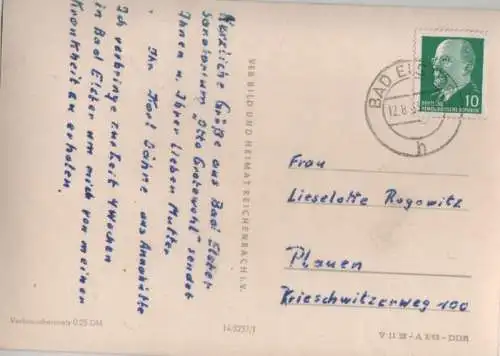 Herzliche Grüße aus Bad Elster
Sanatorium „Otto Grotewohl“ sendet
Ihnen u. Ihrer lieben Mutter
Ihr Karl Jähne aus Annahütte
Ich verbringe zur Zeit 4 Wochen
in Bad Elster um mich von meiner
Krankheit zu erholen.
VEB BILD UND HEIMAT REICHENBACH I. V.
BAD ELS
12.8.6
h
10
DEUTSCHE
DEMOKRATISCHE REPUBLIK
Frau
Lieselotte Rogowitz
Plauen
Krieschwitzerweg 100
Verbraucherpreis 0,25 DM
14/3257/1
V 11 28 - A 1/63 - DDR